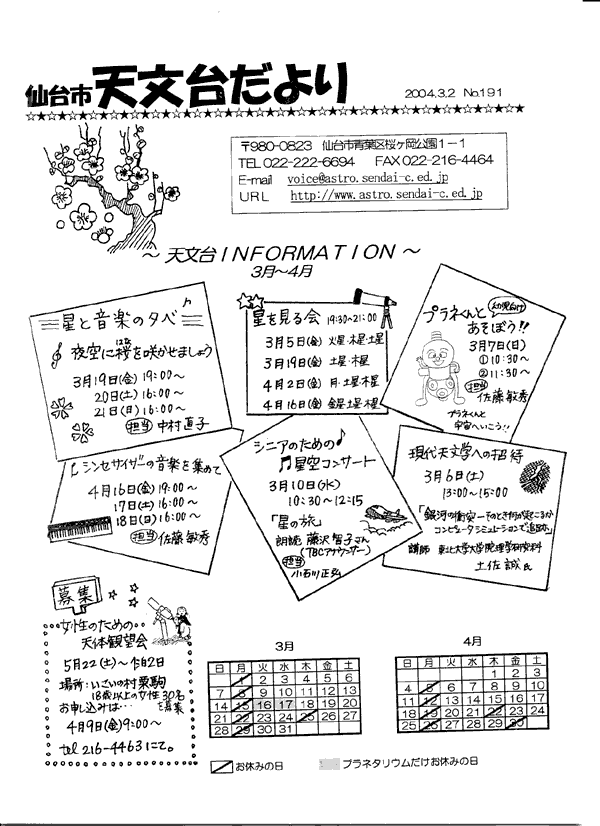 仙台市 天文台だより 2004.3.2 No.191
〒980-0823 仙台市青葉区桜ヶ岡公園1-1
TEL 022-222-6694 FAX 022-216-4464
E-mail voice@astro.sendai-c.ed.jp
URL http://www.astro.sendai-c.ed.jp
～天文台INFORMATION～
3月～4月
星と音楽の夕べ
夜空に桜を咲かせましょう
はな
3月19日(金) 19:00～
20日(土) 16:00～
21日(日) 16:00～
担当 中村直子
星を見る会 19:30~21:00
3月5日(金) 火星・木星・土星
3月19日(金) 土星・木星
4月2日(金) 月・土星・木星
4月16日(金) 金星・土星・木星
プラネくんと
幼児向け
あそぼう!!
3月7日(日)
①10:30～
②11:30～
担当
佐藤敏秀
プラネくんと
宇宙へいこう!!
シンセサイザーの音楽を集めて
4月16日(金) 19:00～
17日(土) 16:00～
18日(日) 16:00～
担当 佐藤敏秀
シニアのための
星空コンサート
3月10日(水)
10:30～12:15
「星の旅」
朗読 藤沢智子さん
(TBCアナウンサー)
担当
小石川正弘
現代天文学への招待
3月6日(土)
13:00～15:00
「銀河の衝突―そのとき何が起こるか
コンピュータシミュレーションで追跡」
講師 東北大学大学院理学研究科
土佐誠氏
募集
女性のための
天体観望会
5月22(土)～1泊2日
場所:いこいの村栗駒
18歳以上の女性30名
を募集
お申し込みは…
4月9日(金)9:00～
tel 216-4463にて。
3月
日 月 火 水 木 金 土
1 2 3 4 5 6
7 8 9 10 11 12 13
14 15 16 17 18 19 20
21 22 23 24 25 26 27
28 29 30 31
4月
日 月 火 水 木 金 土
1 2 3
4 5 6 7 8 9 10
11 12 13 14 15 16 17
18 19 20 21 22 23 24
25 26 27 28 29 30
お休みの日 プラネタリウムだけお休みの日